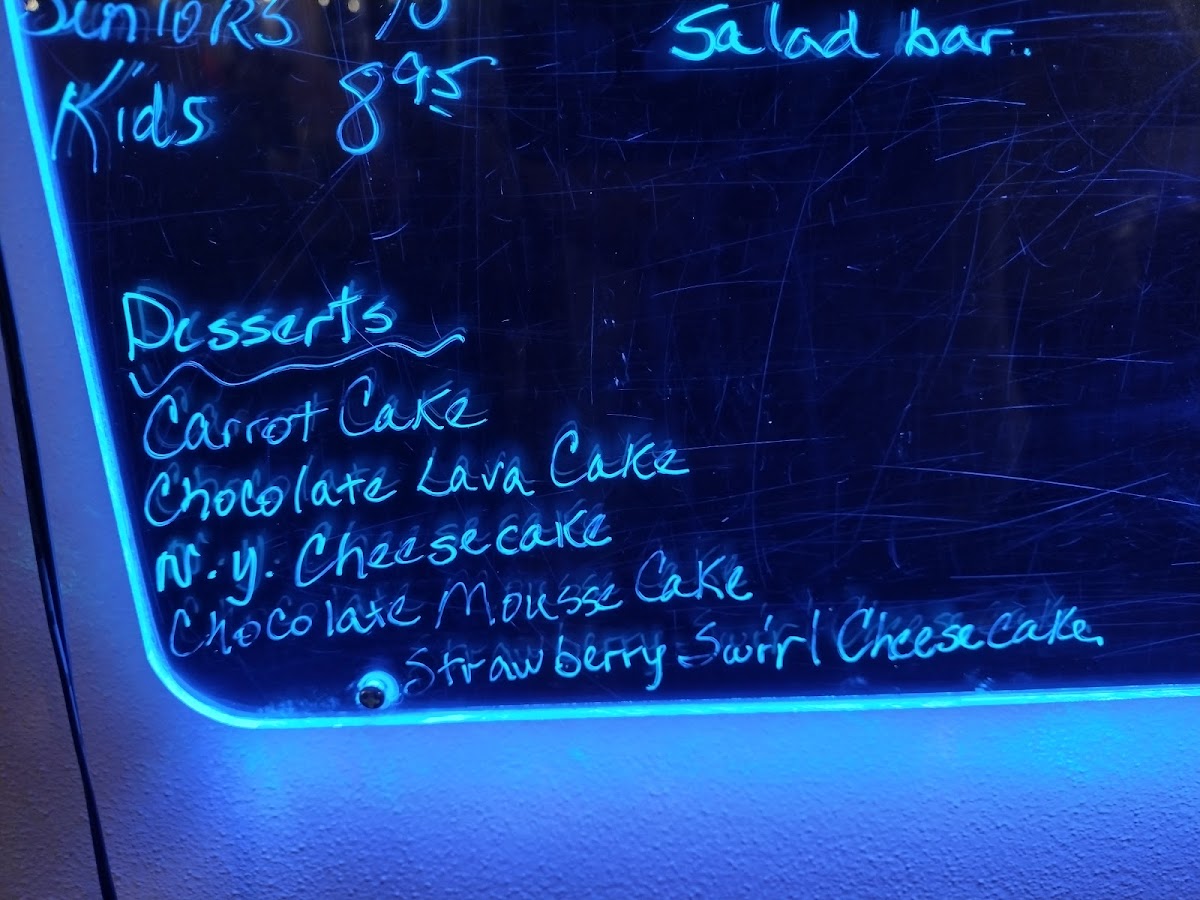 Seniors 10
Salad bar.
Kids 8 95
Desserts
Carrot Cake
Chocolate Lava Cake
N.y. Cheesecake
Chocolate Mousse Cake
Strawberry Swirl Cheesecake